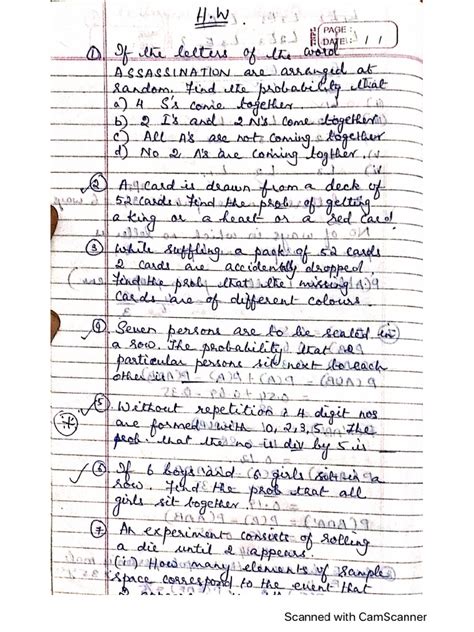 H.W
PAGE:
DATE: 11
① If the letters of the word
ASSASSINATION are arranged at
random. Find the probability that
a) 4 S's come together.
b) 2 I's and 2 N's come together
c) All A's are not coming together
d) No 2 A's are coming togther.
② A card is drawn from a deck of
52 cards. Find the prob of getting
a king or a heart or a red card.
③ While suffling a pack of 52 cards
2 cards are accidently dropped.
Find the prob that the missing
cards are of different colours.
④ Seven persons are to be seated in
a row. The probability that 2
particular persons sit next to each
other is
⑤ Without repetition 4 digit nos
are formed with 0, 2, 3, 5. The
prob that the no is div by 5 is
⑥ If 6 boys and 6 girls sit in a
row. Find the prob that all
girls sit together.
⑦ An experiment consists of rolling
a die until 2 appears.
(i) How many elements of sample
space correspond to the event that
Scanned with CamScanner